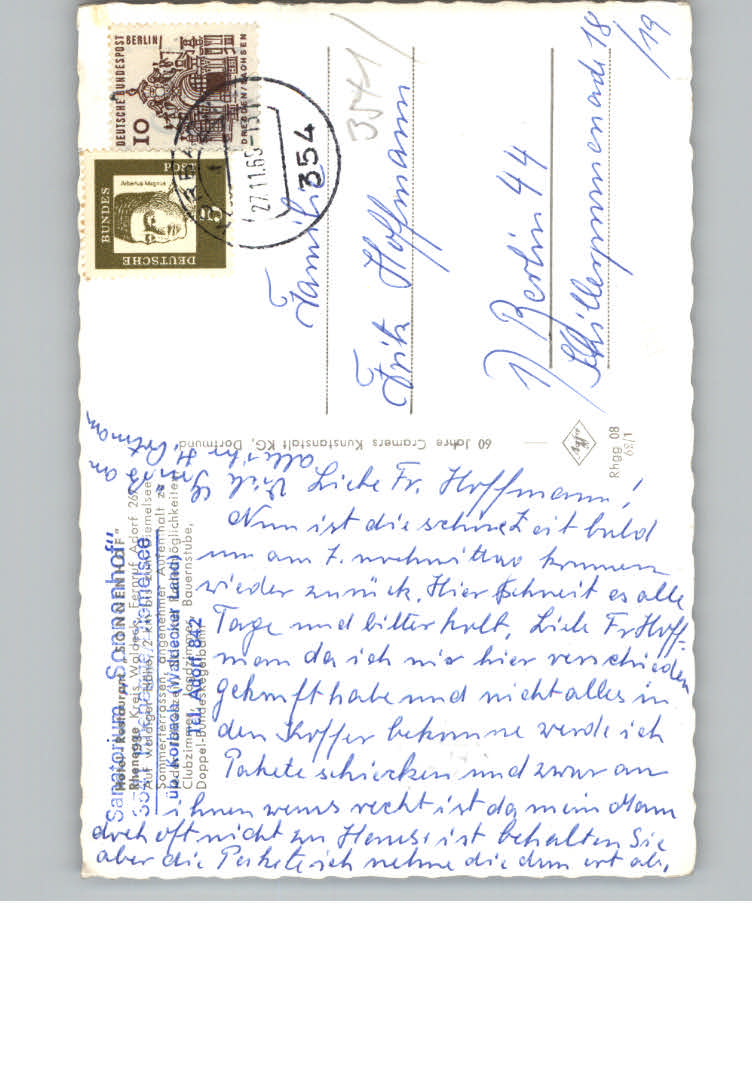 Liebe Fr. Hoffmann!
Nun ist die schöne Zeit bald
um am 7. nachmittag kommen
wieder zurück. Hier schneit es alle
Tage und bitter kalt. Liebe Fr Hoff-
mann da ich mir hier verschieden
gekauft habe und nicht alles in
den Koffer bekomme werde ich
Pakete schicken und zwar an
ihnen wenns recht ist da mein Mann
doch oft nicht zu Hause ist behalten Sie
aber die Pakete ich nehme die dann ab.
Viele
alle ihr H.
Hotel Restaurant "SONNENHOF"
Rhenegge Kreis Waldeck, Fernruf Adorf
Sommerterrassen, angenehmer Aufenthalt zu
Clubzimmer, Jagdzimmer, Bauernstube,
Doppel-Bundeskegelbahn
Sanatorium „Sonnenhof"
üb. Korbach (Waldecker Land)
Tel. Adorf 842
60 Jahre Cramers Kunstanstalt KG, Dortmund
Rhgg 08
DEUTSCHE BUNDESPOST BERLIN
10
DRESDEN/SACHSEN
DEUTSCHE BUNDESPOST
Albertus Magnus
5
354
27.11.65
3541
Familie
Fritz Hoffmann
1) Berlin 44
Schillerpromenade 18
/19